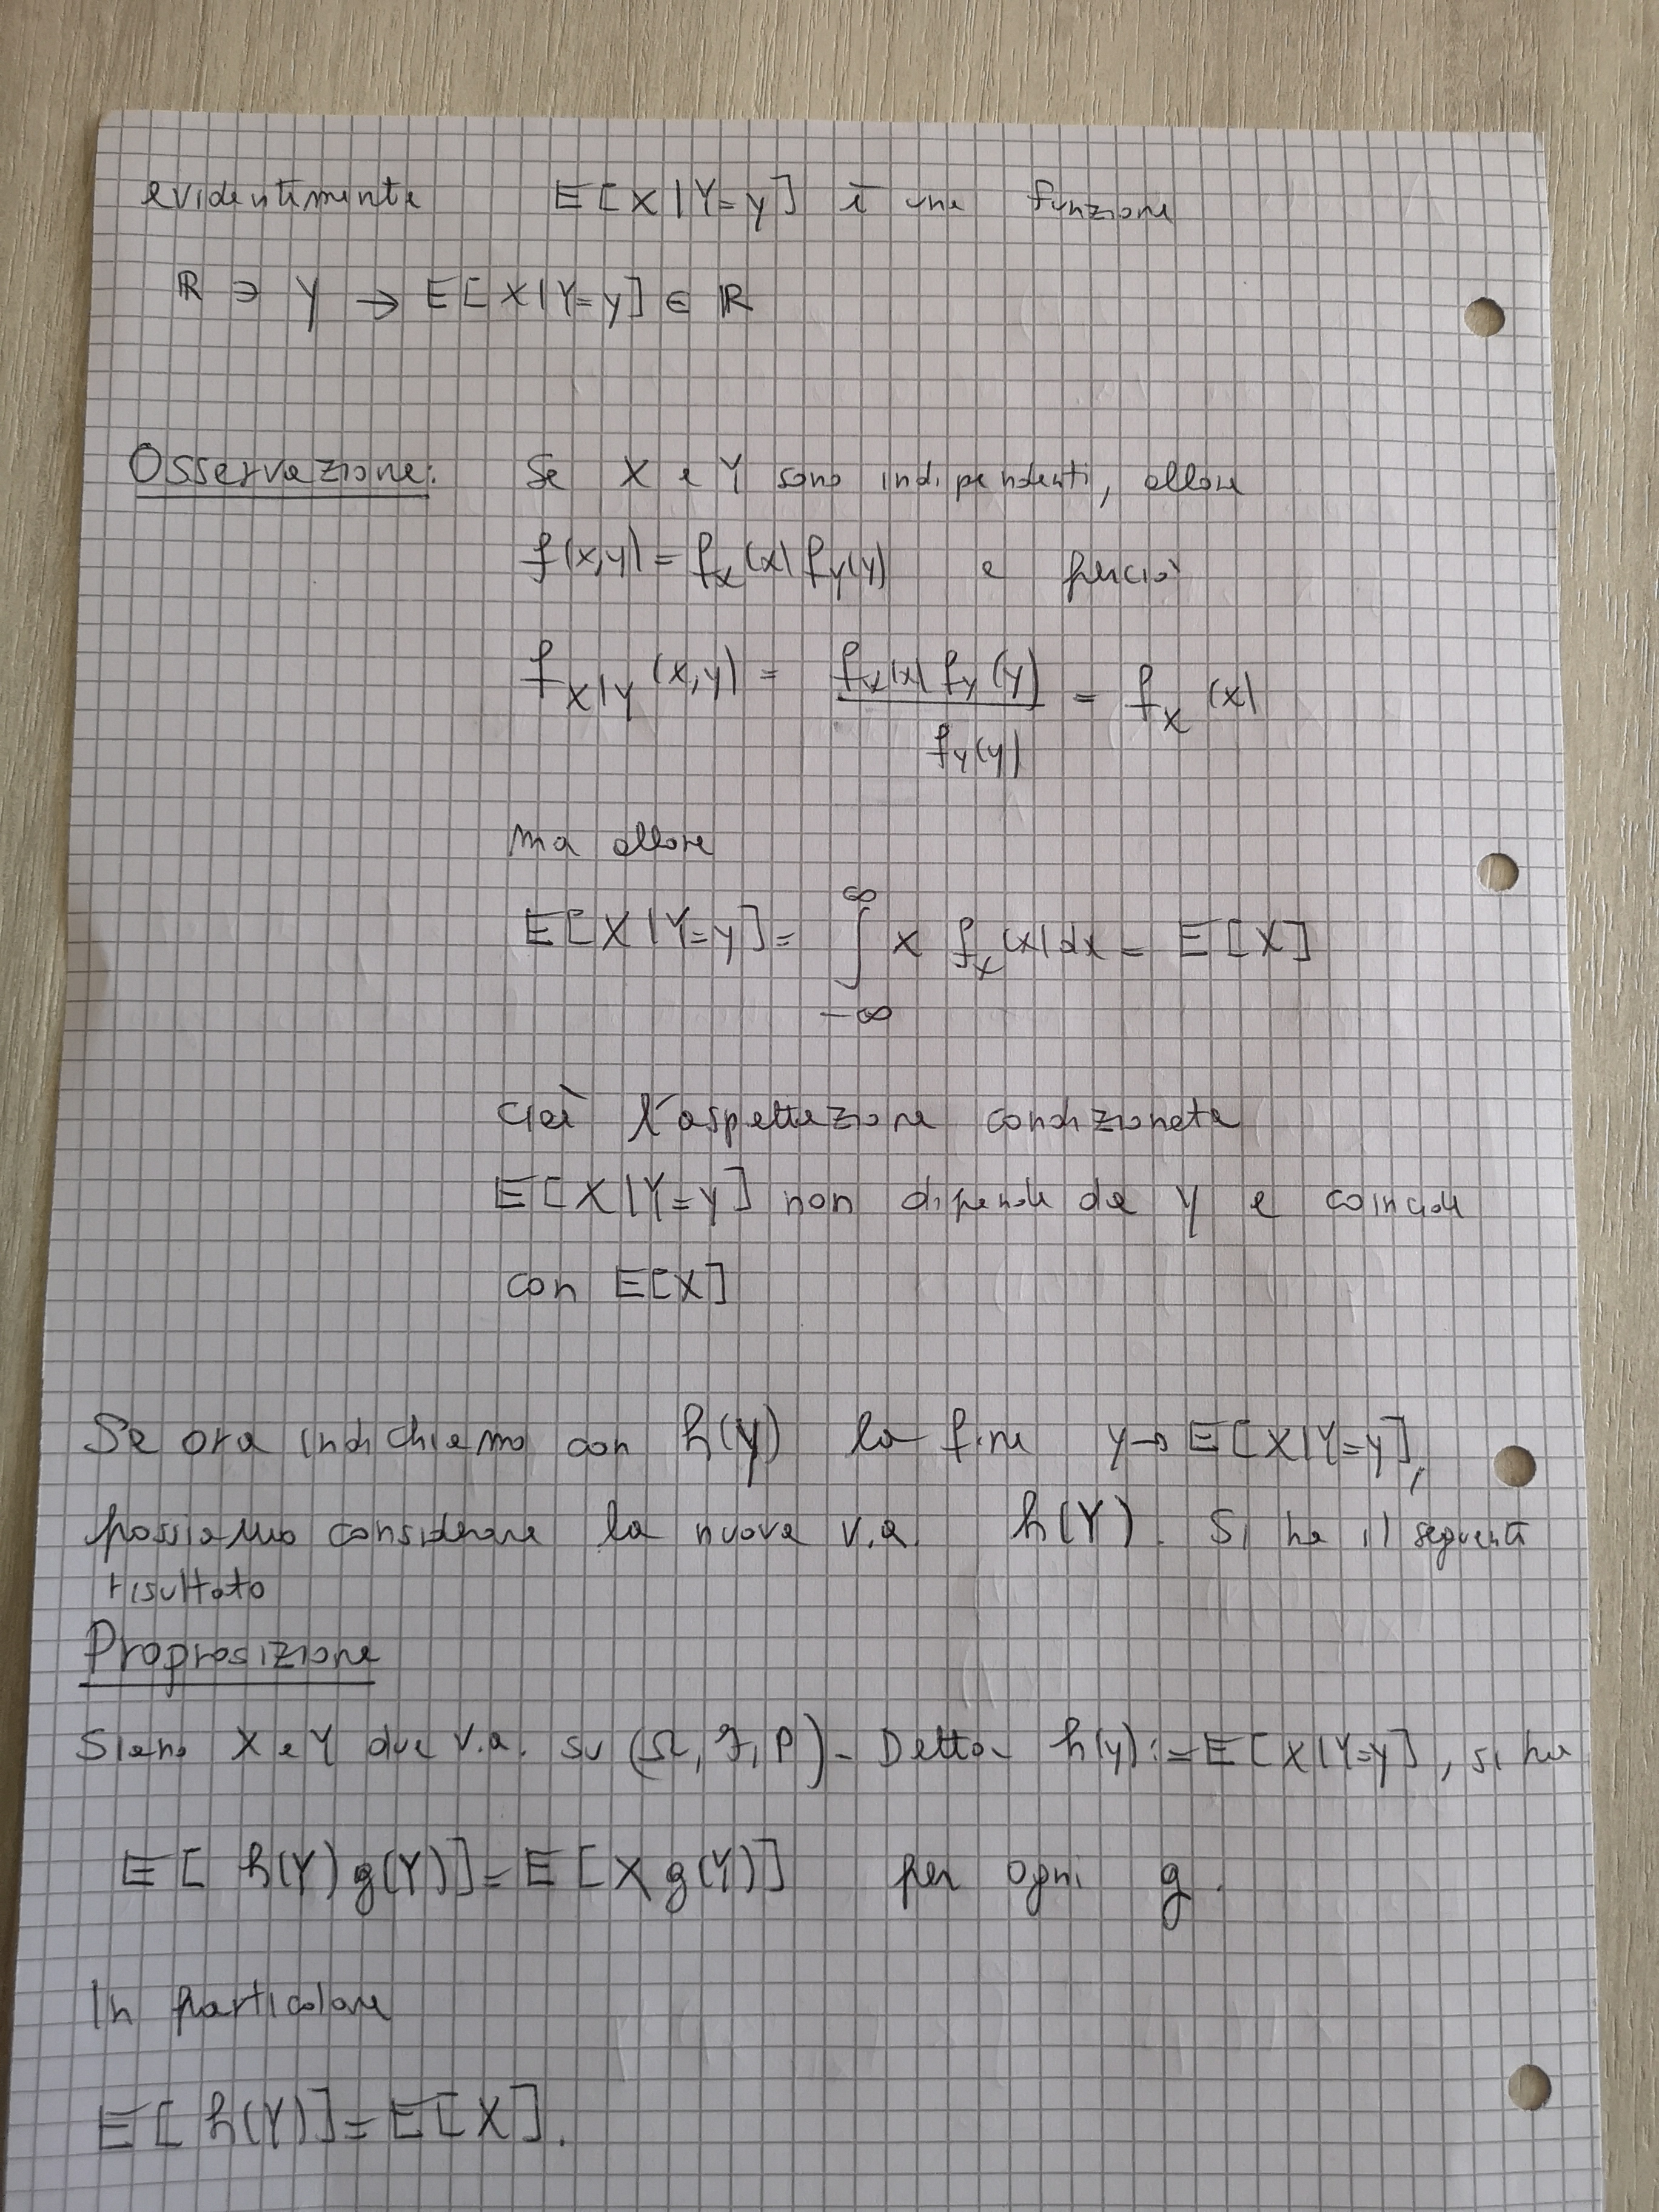 evidentemente E[X|Y=y] è una funzione
ℝ ∋ y → E[X|Y=y] ∈ ℝ
Osservazione: Se X e Y sono indipendenti, allora
f(x,y) = f_X(x) f_Y(y) e perciò
f_{X|Y}(x,y) = \frac{f_X(x) f_Y(y)}{f_Y(y)} = f_X(x)
ma allora
E[X|Y=y] = \int_{-∞}^{∞} x f_X(x) dx = E[X]
cioè l'aspettazione condizionata
E[X|Y=y] non dipende da y e coincide
con E[X]
Se ora indichiamo con h(y) la f.ne y → E[X|Y=y],
possiamo considerare la nuova v.a. h(Y). Si ha il seguente
risultato
Proprosizione
Siano X e Y due v.a. su (Ω, F, P) - Detta h(y) := E[X|Y=y], si ha
E[h(Y) g(Y)] = E[X g(Y)] per ogni g.
In particolare
E[h(Y)] = E[X].